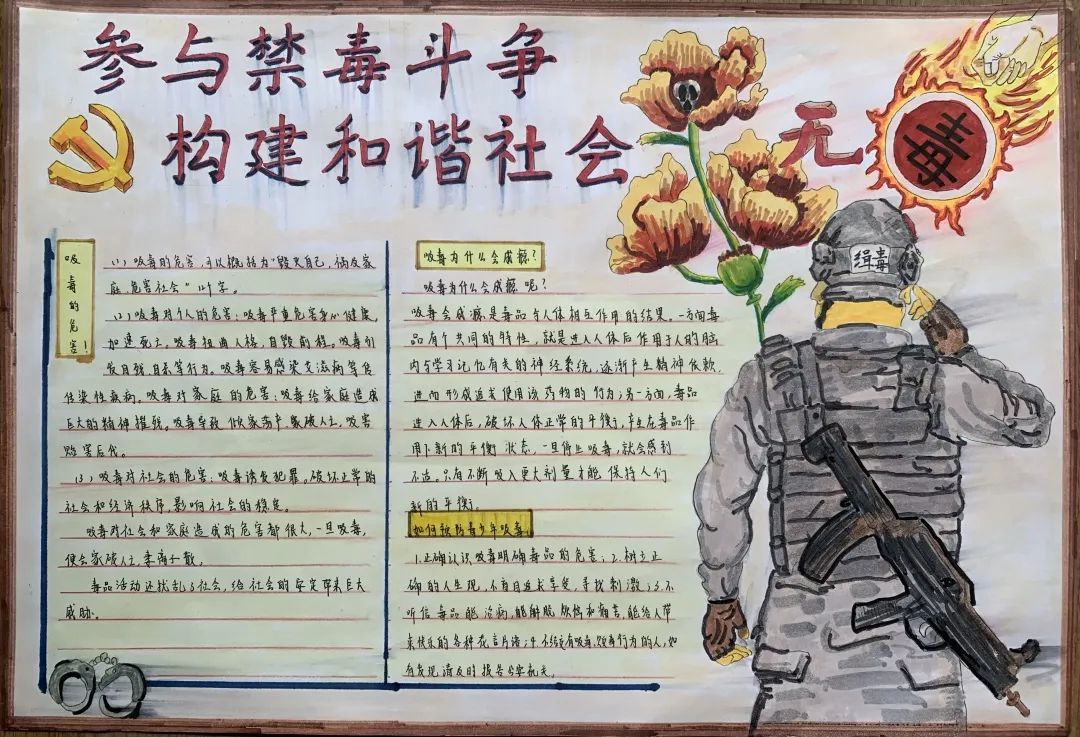 参与禁毒斗争
构建和谐社会
无毒
缉毒
吸毒的危害！
(1)吸毒的危害,可以概括为“毁灭自己,祸及家
庭,危害社会”12个字。
(2)吸毒对个人的危害:吸毒严重危害身心健康,
加速死亡。吸毒扭曲人格,自毁前程。吸毒引
发自残、自杀等行为。吸毒容易感染艾滋病等传
传染性疾病。吸毒对家庭的危害:吸毒给家庭造成
巨大的精神摧残。吸毒导致倾家荡产、家破人亡。吸毒
贻害后代。
(3)吸毒对社会的危害:吸毒诱发犯罪。破坏正常的
社会和经济秩序,影响社会的稳定。
吸毒对社会和家庭造成的危害都很大,一旦吸毒,
便会家破人亡,妻离子散。
毒品活动还扰乱了社会,给社会的安定带来巨大
威胁。
吸毒为什么会成瘾?
吸毒为什么会成瘾呢?
吸毒会成瘾是毒品与人体相互作用的结果。一方面毒
品有个共同的特性,就是进入人体后作用于人的脑
内与学习记忆有关的神经系统,逐渐产生精神依赖,
进而形成追求使用该药物的行为;另一方面,毒品
进入人体后,破坏人体正常的平衡,产生在毒品作
用下新的平衡状态,一旦停止吸毒,就会感到
不适。只有不断吸入更大剂量才能保持人们
新的平衡。
如何预防青少年吸毒
1.正确认识吸毒明确毒品的危害;2.树立正
确的人生观,不盲目追求享受,寻找刺激;3.不
听信毒品能治病,能解脱烦恼和痛苦,能给人带
来快乐的各种花言巧语;4.不结交有吸毒,贩毒行为的人,如
有发现请及时报告公安机关。